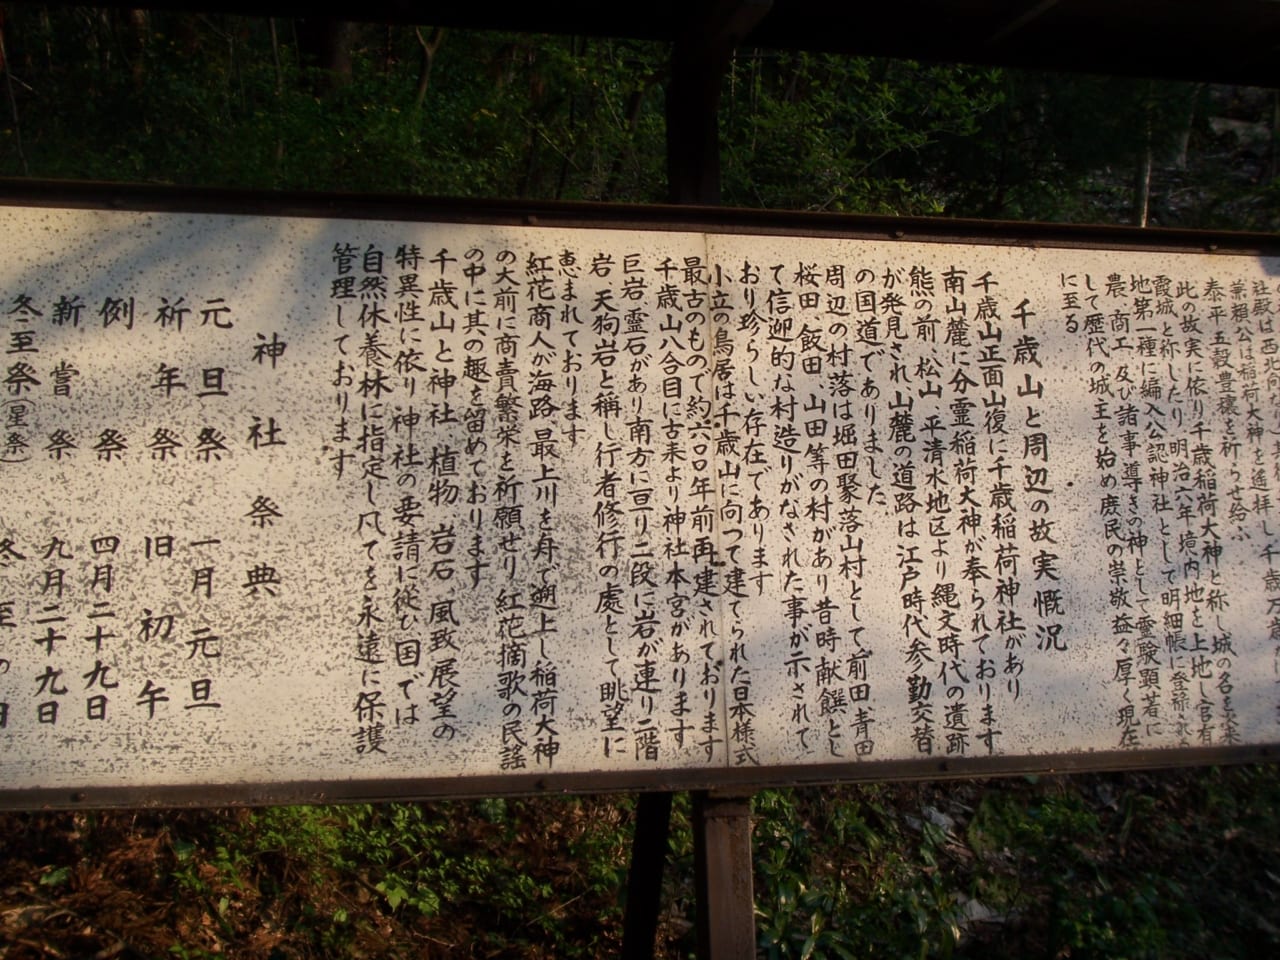 社殿は西北向
葉頼公は稲荷大神を遥拝し千歳万歳
泰平五穀豊穣を祈らせ給ふ
此の故実に依り千歳稲荷大神と称し城の名を
霞城と称したり明治六年境内地を上地し官有
地第一種に編入公認神社として明細帳に登録
農、商工、及び諸事導きの神として霊験顕著に
して歴代の城主を始め庶民の崇敬益々厚く現在
に至る
千歳山と周辺の故実慨況
千歳山正面山復に千歳稲荷神社があり
南山麓に分霊稲荷大神が奉られております
熊の前、松山、平清水地区より縄文時代の遺跡
が発見され山麓の道路は江戸時代参勤交替
の国道でありました
周辺の村落は堀田聚落山村として前田、青田
桜田、飯田、山田等の村があり昔時献饌とし
て信迎的な村造りがなされた事が示されて
おり珍らしい存在であります
小立の鳥居は千歳山に向って建てられた日本様式
最古のもので約六〇〇年前再建されております
千歳山八合目に古来より神社本宮があります
巨岩霊石があり南方に亘り二段に岩が連り二階
岩、天狗岩と称し行者修行の處として眺望に
恵まれております
紅花商人が海路、最上川を舟で遡上し稲荷大神
の大前に商責繁栄を祈願せり紅花摘歌の民謡
の中に其の趣を留めております
千歳山と神社、植物、岩石、風致展望の
特異性に依り神社の要請に従ひ国では
自然休養林に指定し凡てを永遠に保護
管理しております
神社祭典
元旦祭 一月元旦
祈年祭 旧初午
例祭 四月二十九日
新嘗祭 九月二十九日
冬至祭(星祭) 冬至の日